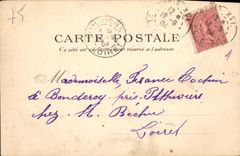 75
CARTE POSTALE
Ce côté est exclusivement réservé à l'adresse
Mademoiselle France Cochin
à Bonderoy près Pithiviers
chez M. Bécher
Loiret
1